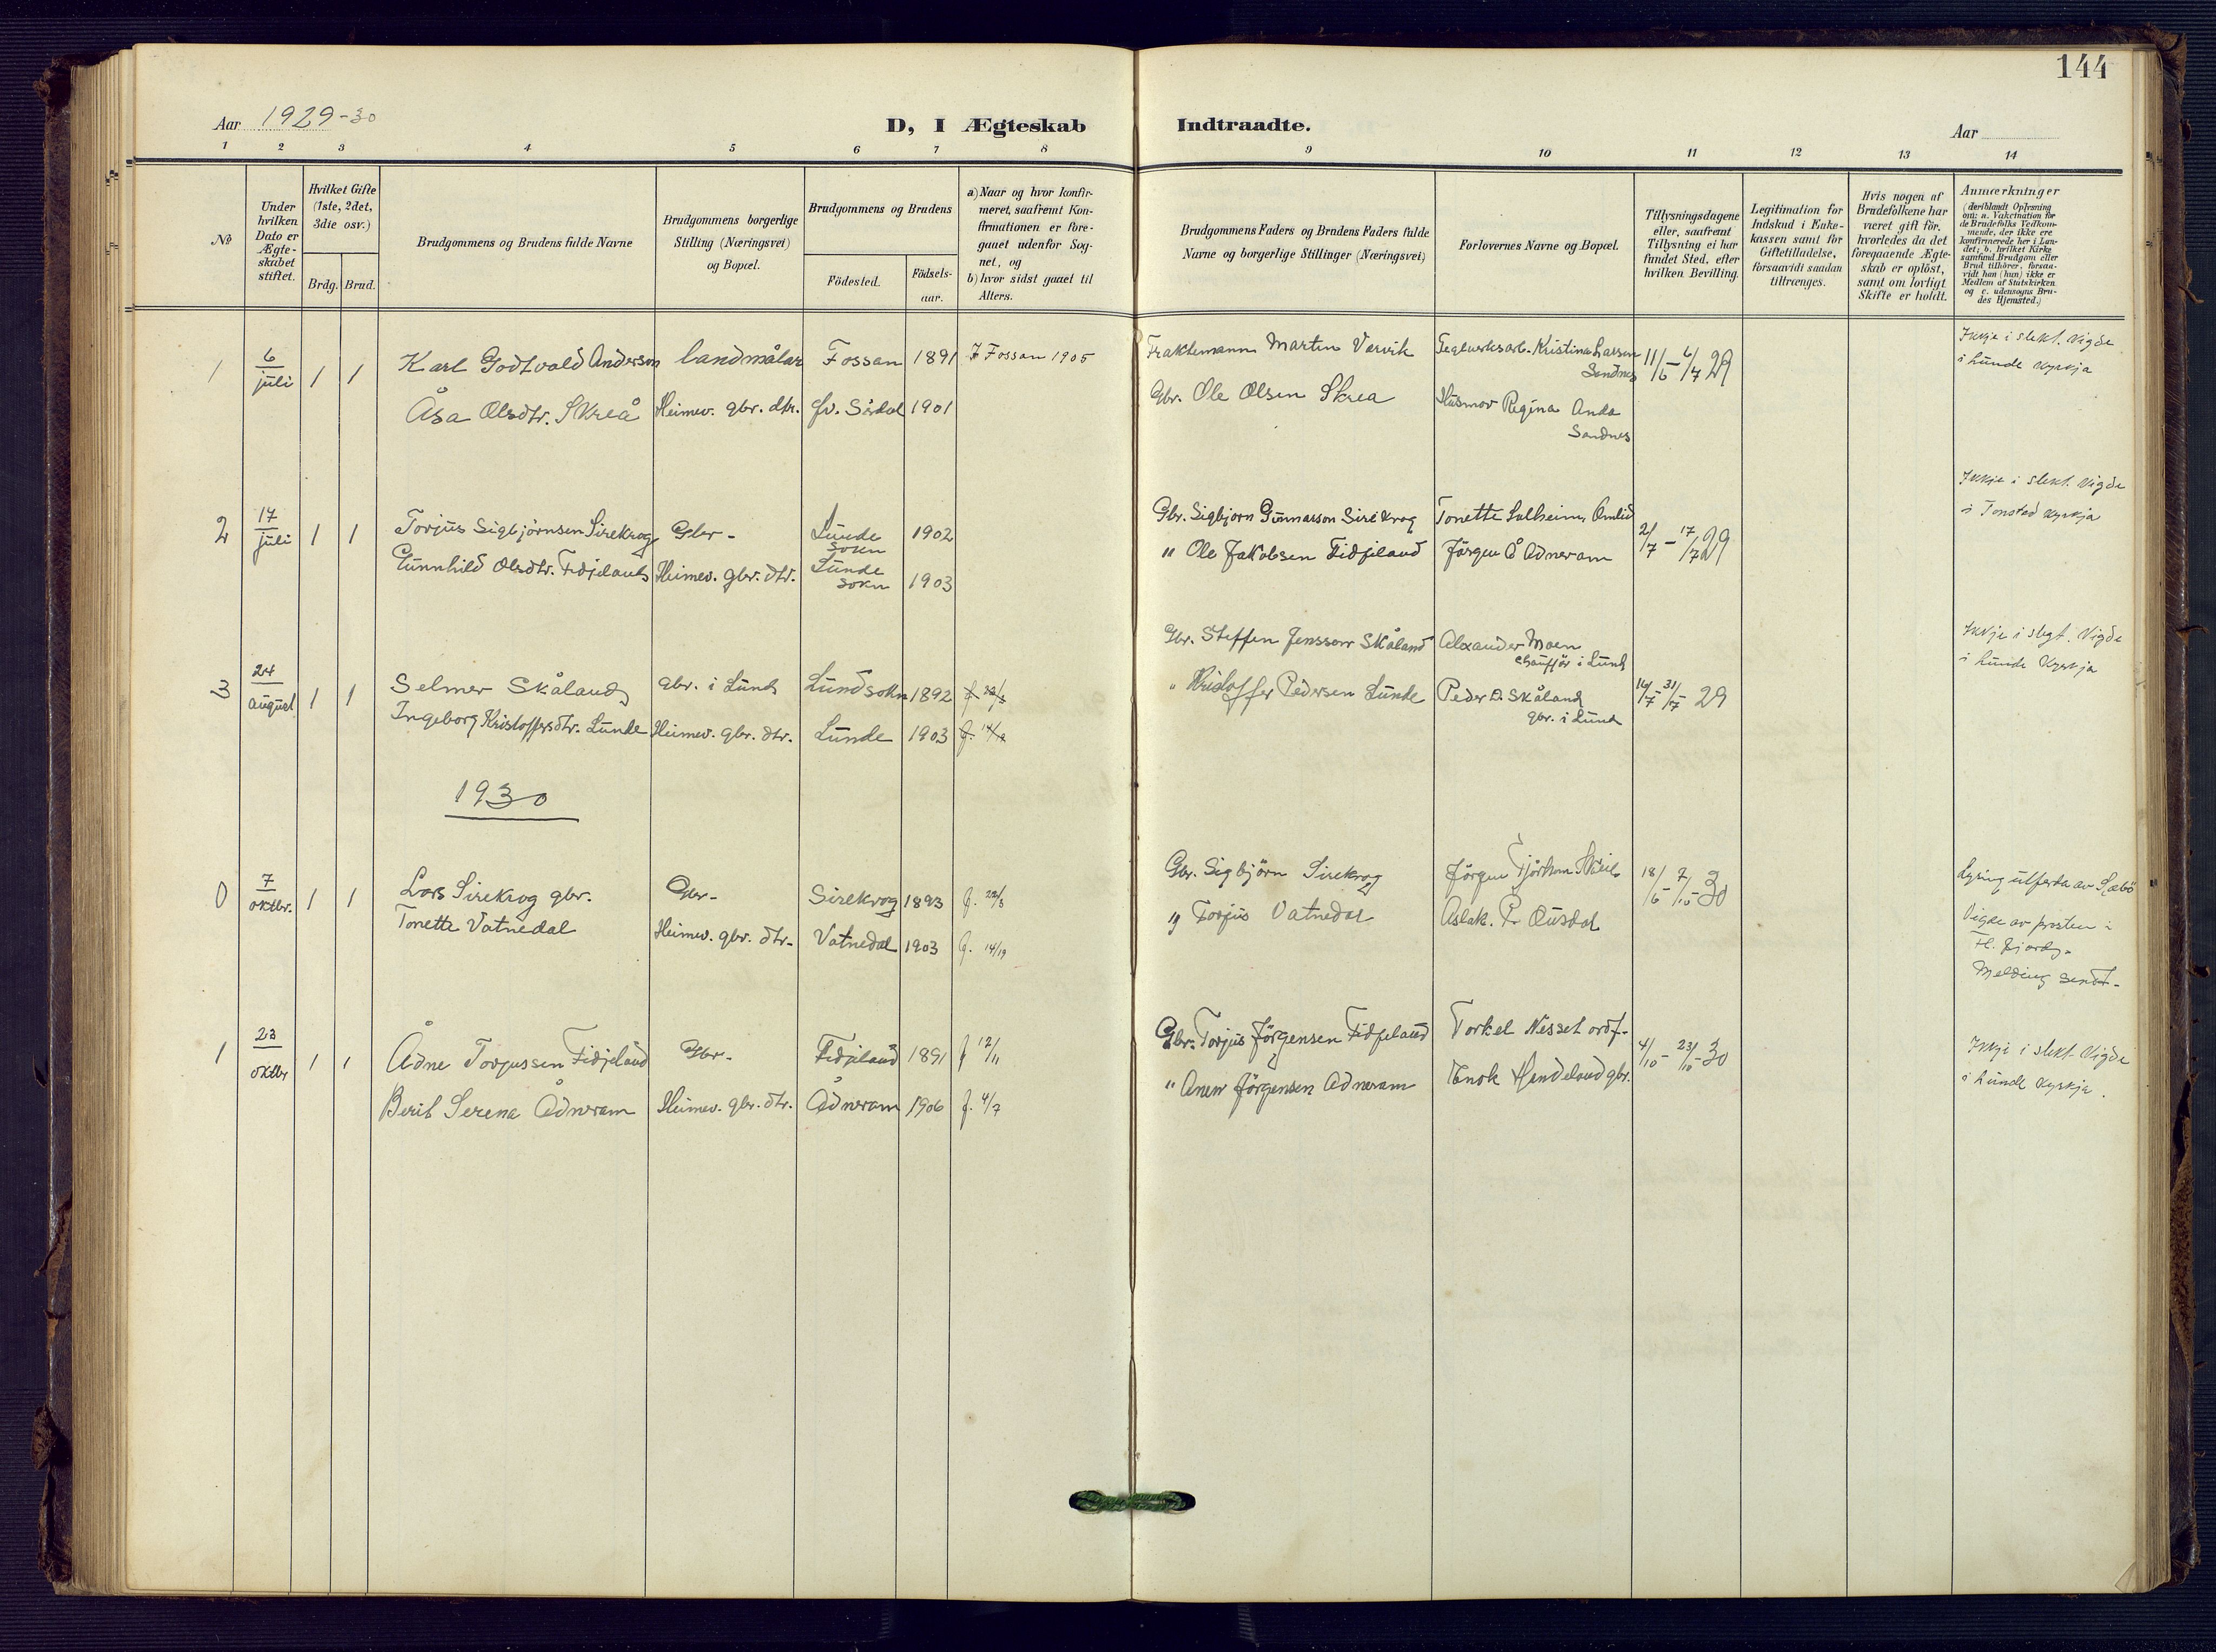 144
Aar 1929-30
D, I Ægteskab Indtraadte.
Aar
1 2 3 4 5 6 7 8 9 10 11 12 13 14
No
Under hvilken Dato er Ægteskabet stiftet.
Hvilket Gifte (1ste, 2det, 3die osv.)
Brdg. Brud.
Brudgommens og Brudens fulde Navne
Brudgommens borgerlige Stilling (Næringsvei) og Bopæl.
Brudgommens og Brudens
Födested.
Födselsaar.
a) Naar og hvor konfirmeret, saafremt Konfirmationen er foregaaet udenfor Sognet, og
b) hvor sidst gaaet til Alters.
Brudgommens Faders og Brudens Faders fulde Navne og borgerlige Stillinger (Næringsvei)
Forlovernes Navne og Bopæl.
Tillysningsdagene eller, saafremt Tillysning ei har fundet Sted, efter hvilken Bevilling.
Legitimation for Indskud i Enkekassen samt for Giftetilladelse, forsaavidt saadan tiltrænges.
Hvis nogen af Brudefolkene har været gift för, hvorledes da det foregaaende Ægteskab er oplöst, samt om lovligt Skifte er holdt.
Anmærkninger
(deriblandt Oplysning om: a. Vakcination for de Brudefolks Vedkommende, der ikke ere konfirmerede her i Landet; b. hvilket Kirkesamfund Brudgom eller Brud tilhörer, forsaavidt han (hun) ikke er Medlem af Statskirken og c. udensogns Brudes Hjemsted.)
1 6/juli 1 1 Karl Godtvald Anderson landmålar Fossan 1891 Fossan 1905 Fraktemann Martin Værvik Teglverksarb. Kristina Larsen Sandnes 11/6 - 6/7 29 Ikkje i slekt. Vigde
i Lunde kyrkja
Åsa Olsdtr. Skreå Heimev. gbr. dtr. Øv. Sirdal 1901 Gbr. Ole Olsen Skrea Husmor Regina Anda
Sandnes
2 17/juli 1 1 Torjus Sigbjörnsen Sirekrog Gbr - Lunde sokn 1902 Gbr. Sigbjorn Gunnarson Sirekrog Tonette Solheim, Omlid 2/7 - 17/7 29 Ikkje i slekt. Vigde
i Tonstad kyrkja
Gunnhild Olsdtr. Fidjeland Heimev. gbr. dtr. Lunde sokn 1903 " Ole Jakobsen Fidjeland Jörgen Å Ådneram
3 24/august 1 1 Selmer Skåland gbr. i Lund Lundsokn 1892 Gbr. Steffen Jensson Skåland Alexander Moen
chauffør i Lund 29 Ikkje i slegt. Vigde
i Lunde Kyrkja
Ingeborg Kristoffersdtr. Lunde Heimev. gbr. dtr. Lunde 1903 " Kristoffer Pedersen Lunde Peder D. Skåland
gbr. i Lund
1930
0 7/oktbr. 1 1 Lars Sirekrog gbr. Gbr - Sirekrog 1893 Gbr. Sigbjörn Sirekrog Jörgen Tjörhom 18/6 7/10 30 Lysing utferda av Sæbö
Tonette Vatnedal Heimev. gbr. dtr - Vatnedal 1903 f. 14/19 " Torjus Vatnedal Aslak. P. Ousdal Vigde av prosten i
Fl. fjord.
Melding sendt -
1 23/oktbr 1 1 Ådne Torjussen Fidjeland Gbr - Fidjeland 1891 f 12/11 Gbr. Torjus Jörgensen Fidjeland Torkel Nesset ordf - 4/10 - 23/10 30 Ikkje i slekt. Vigde
i Lunde kyrkja.
Berit Serena Ådneram Heimev. gbr. dtr. Ådneram 1906 f. 4/7 " Anen Jörgensen Ådneram Enok Hendeland gbr.